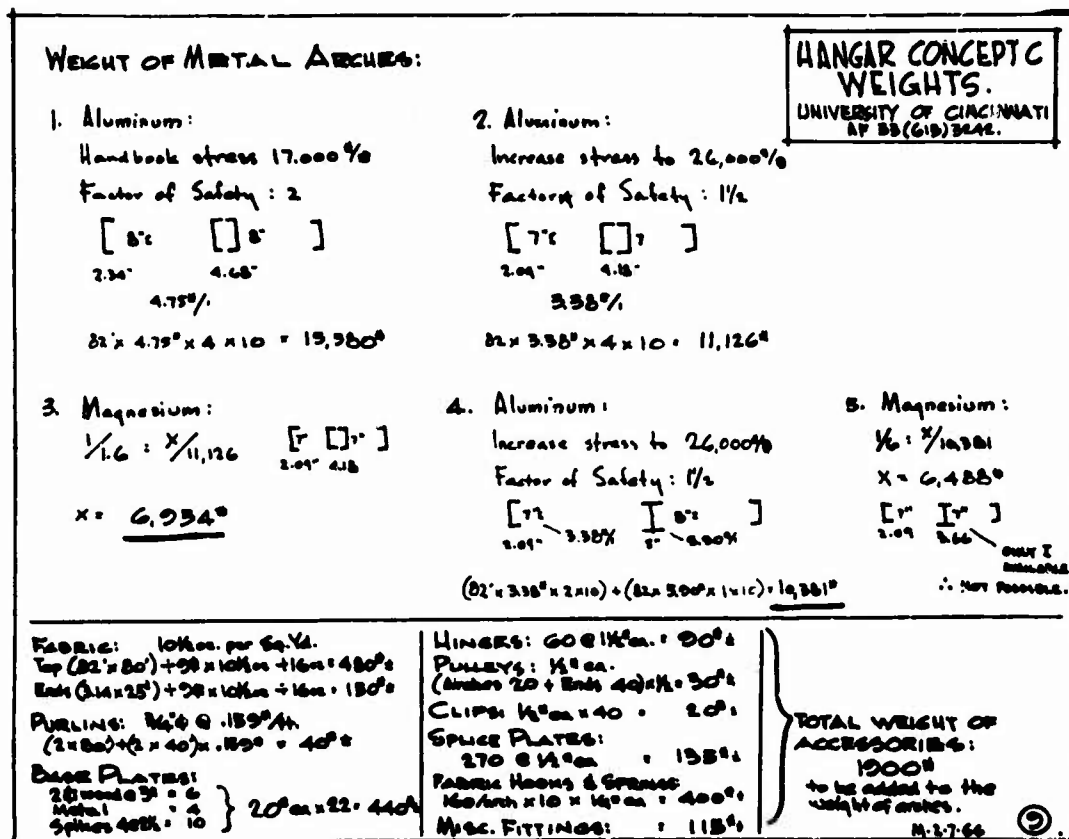 WEIGHT OF METAL ARCHES:
HANGAR CONCEPT C
WEIGHTS.
UNIVERSITY OF CINCINNATI
AF 33(615)3242.
1. Aluminum:
Handbook stress 17.000 #/□
Factor of Safety : 2
[ 8"s [] 8" ]
2.34" 4.68"
4.75#/'
82' x 4.75# x 4 x 10 = 15,580#
2. Aluminum:
Increase stress to 26,000#/□
Factor of Safety : 1½
[ 7"s [] 7 ]
2.09" 4.18"
3.38#/'
82 x 3.38# x 4 x 10 = 11,126#
3. Magnesium:
1/1.6 = x/11,126 [7" [] 7" ]
2.09" 4.18
x = 6,954#
4. Aluminum:
Increase stress to 26,000#/□
Factor of Safety : 1½
[ I 8"s ]
2.09" 3.38#/'
(82' x 3.38# x 2 x 10) + (82 x 5.90# x 1 x 10) = 10,381#
5. Magnesium:
1/6 = x/10,381
x = 6,488#
[7" I 7" ]
2.09 3.66
ONLY I
AVAILABLE
∴ NOT POSSIBLE.
FABRIC: 10½oz. per Sq.Yd.
Top (82'x80') ÷ 9# x 10½oz ÷ 16oz = 480#±
Ends (3.14x25²) ÷ 9# x 10½oz ÷ 16oz = 130#±
PURLINS: ¾"φ @ .159#/ft.
(2x80)+(2x40)x.159# = 40#±
BASE PLATES:
2 @ wood @ 3# = 6
Metal = 4
Spikes = 10
20# ea x 22 = 440#±
HINGES: 60 @ 1½# ea. = 90#±
PULLEYS: ½# ea.
(Arches 20 + Ends 40)x½ = 30#±
CLIPS: ½# ea x 40 = 20#±
SPLICE PLATES:
270 @ ½# ea = 135#±
FABRIC HOOKS & SPRINGS
160/arch x 10 x ¼# ea = 400#±
MISC. FITTINGS: = 115#±
TOTAL WEIGHT OF
ACCESSORIES:
1900#
to be added to the
weight of arches.
M-2-7-66
9